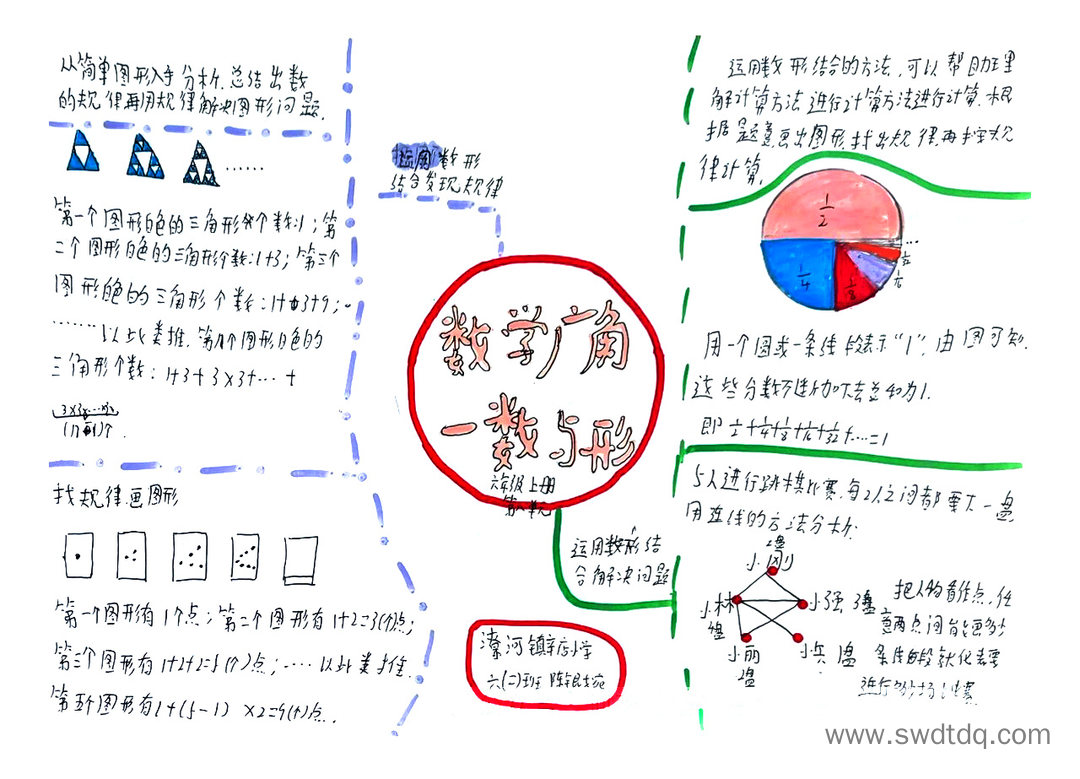 从简单图形入手分析.总结出数
的规律再用规律解决图形问题.
……
第一个图形白色的三角形个数:1;第
二个图形白色的三角形个数:1+3;第三个
图形白色的三角形个数:1+3+9;
……以此类推.第n个图形白色的
三角形个数:1+3+3×3+…+
3×3×…×3
(n-1)个.
找规律画图形
第一个图形有1个点;第二个图形有1+2=3(个)点;
第三个图形有1+2+2=5(个)点;…以此类推.
第五个图形有1+(5-1)×2=9(个)点.
运用数形
结合发现规律
数学广角
一数与形
六年级上册
第八单元
运用数形结
合解决问题
漻河镇辛店小学
六(二)班
运用数形结合的方法,可以帮助理
解计算方法进行计算方法进行计算.根
据题意画出图形,找出规律,再按规
律计算.
1/2
1/4
1/8
1/16
1/32
…
用一个圆或一条线段表示“1”,由图可知.
这些分数不断加下去总和为1.
即1/2+1/4+1/8+1/16+1/32+…=1
5人进行跳棋比赛,每2人之间都要下一盘
用连线的方法分析.
小刚
盘
小林
盘
小强 3盘
小丽
盘
小兵 盘
把人物看作点,任
意两点间能画多少
条线段就代表需要
进行多少场比赛
www.swdtdq.com